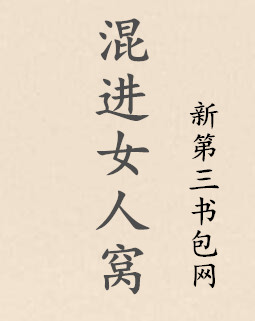 混进女人窝
新第三书包网